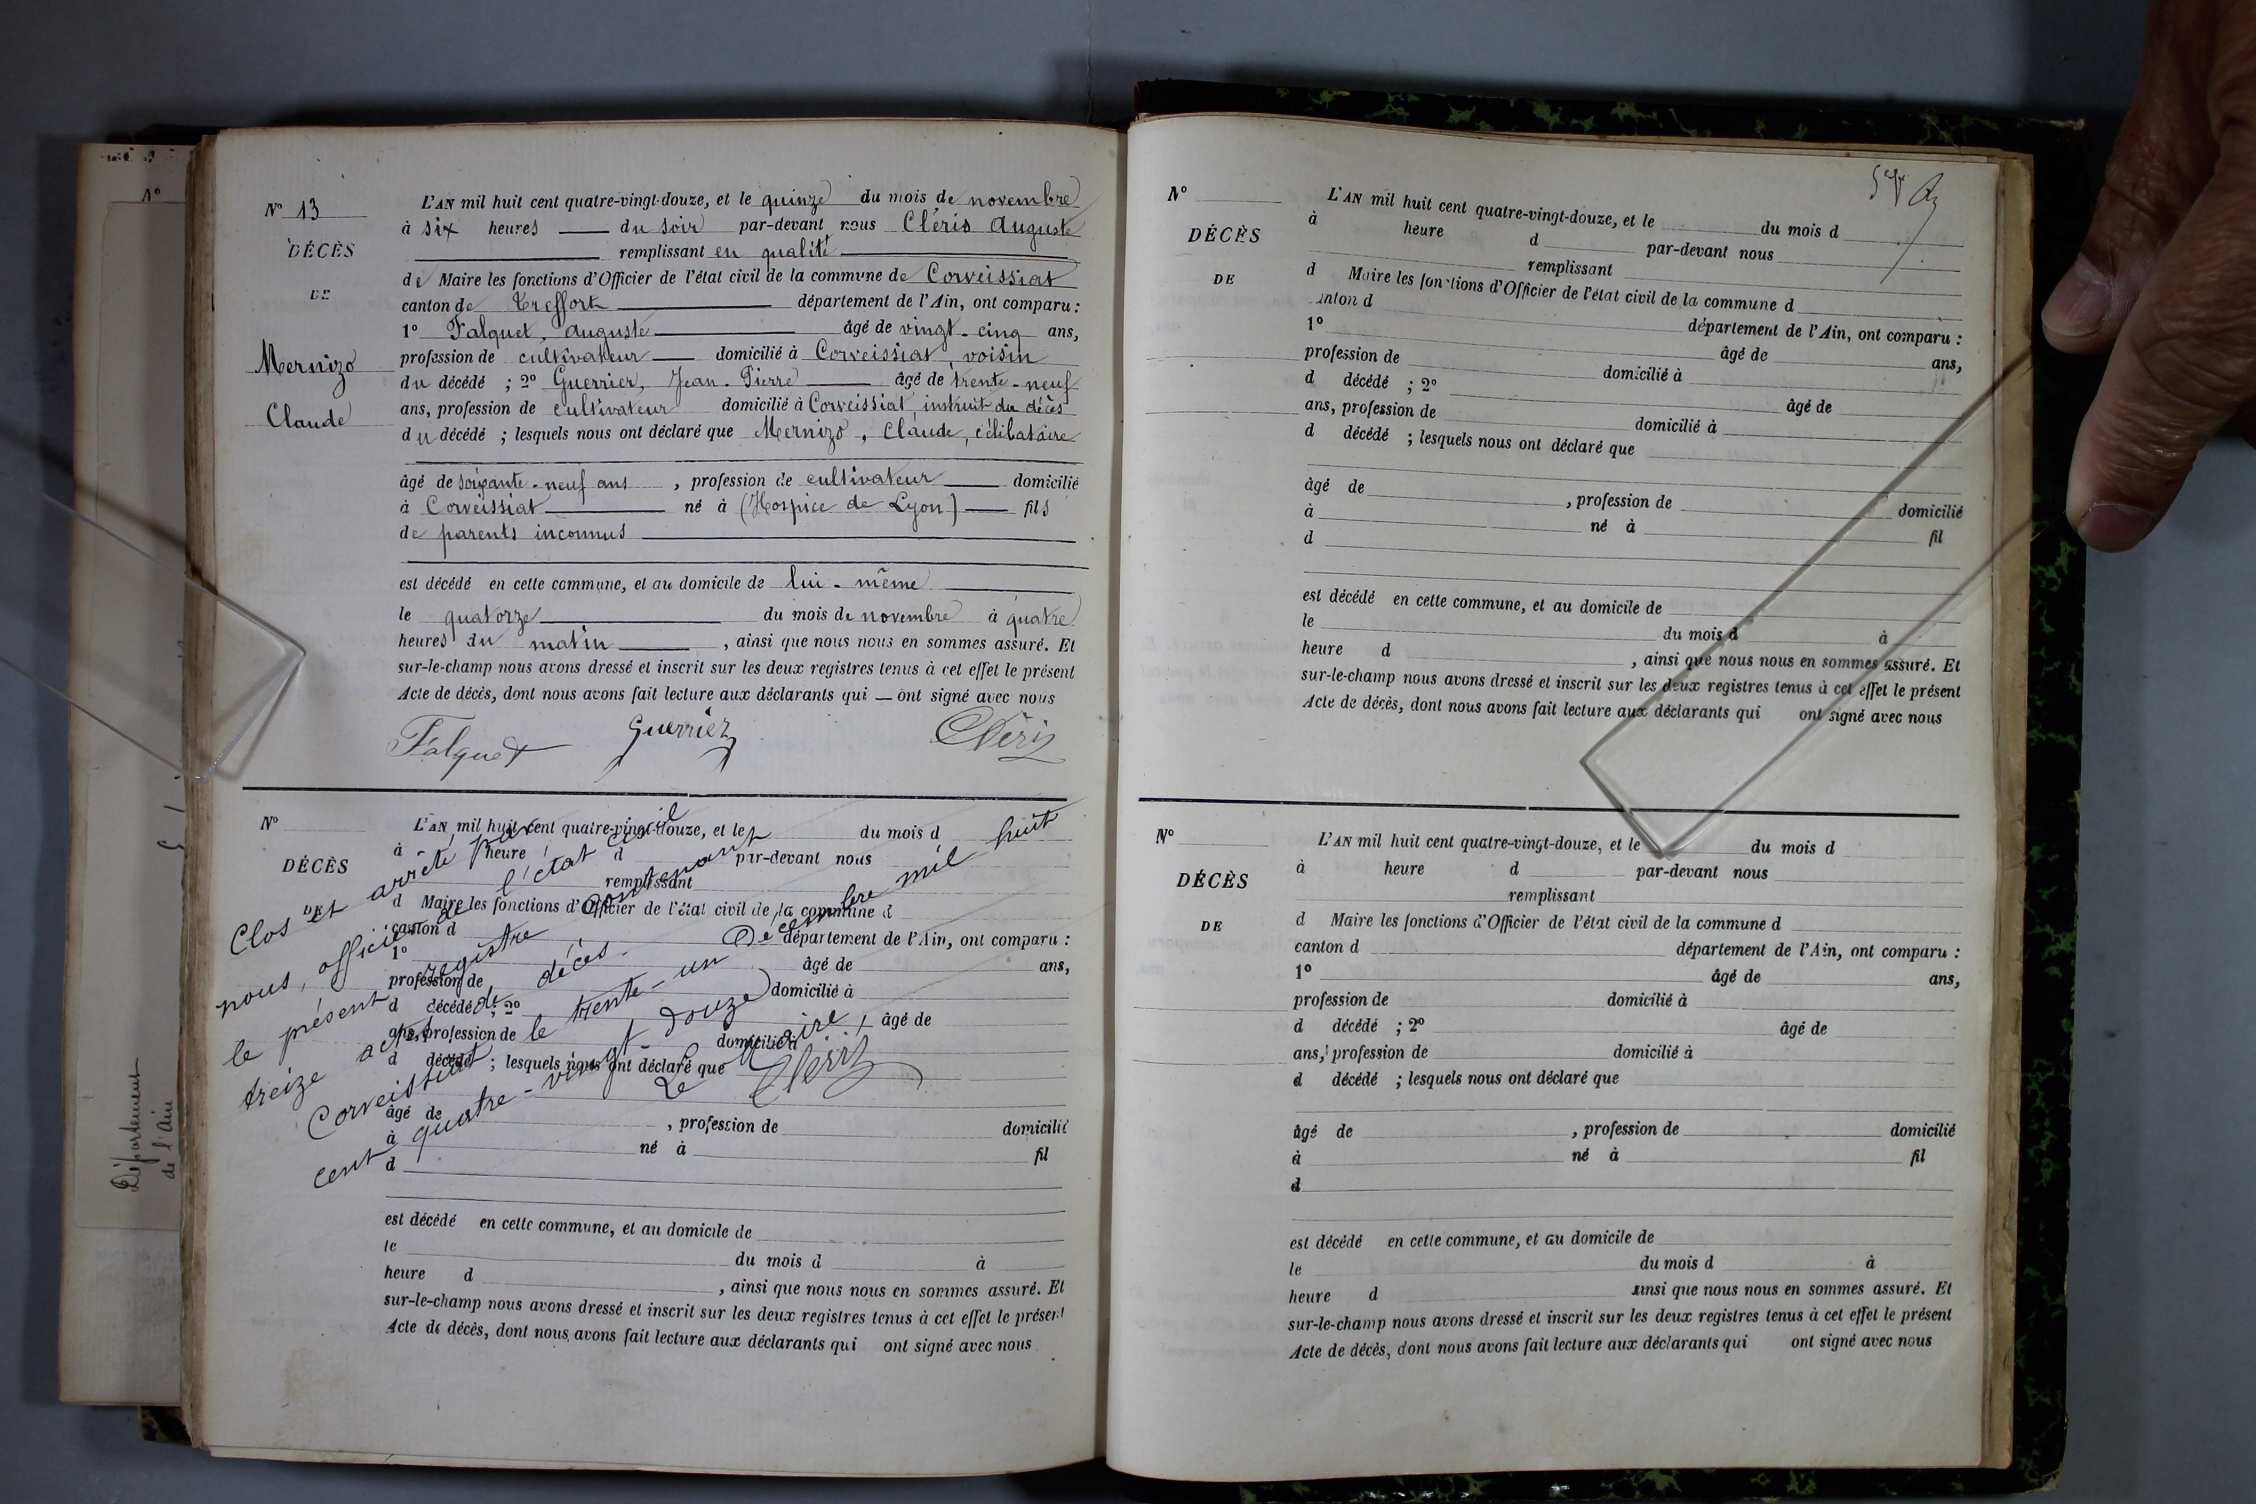 N° 13
DÉCÈS
DE
Mernizo
Claude
L'AN mil huit cent quatre-vingt-douze, et le quinze du mois de novembre
à six heures du soir par-devant nous Cléris Auguste
remplissant en qualité
de Maire les fonctions d'Officier de l'état civil de la commune de Corveissiat
canton de Treffort département de l'Ain, ont comparu :
1° Falquet, Auguste âgé de vingt-cinq ans,
profession de cultivateur domicilié à Corveissiat, voisin
du décédé ; 2° Guerrier, Jean-Pierre âgé de trente-neuf
ans, profession de cultivateur domicilié à Corveissiat, instruit du décès
du décédé ; lesquels nous ont déclaré que Mernizo, Claude, célibataire
âgé de soixante-neuf ans, profession de cultivateur domicilié
à Corveissiat né à (Hospice de Lyon) fils
de parents inconnus
est décédé en cette commune, et au domicile de lui-même
le quatorze du mois de novembre à quatre
heures du matin, ainsi que nous nous en sommes assuré. Et
sur-le-champ nous avons dressé et inscrit sur les deux registres tenus à cet effet le présent
Acte de décès, dont nous avons fait lecture aux déclarants qui — ont signé avec nous
Falquet Guerrier Cléris
N°
DÉCÈS
DE
L'AN mil huit cent quatre-vingt-douze, et le du mois d
à heure d par-devant nous
remplissant
d Maire les fonctions d'Officier de l'état civil de la commune d
canton d département de l'Ain, ont comparu :
1° âgé de ans,
profession de domicilié à
d décédé ; 2° âgé de
ans, profession de domicilié à
d décédé ; lesquels nous ont déclaré que
âgé de , profession de domicilié
à né à fil
d
est décédé en cette commune, et au domicile de
le du mois d à
heure d , ainsi que nous nous en sommes assuré. Et
sur-le-champ nous avons dressé et inscrit sur les deux registres tenus à cet effet le présent
Acte de décès, dont nous avons fait lecture aux déclarants qui ont signé avec nous
Clos et arrêté par
nous, officier de l'état civil
le présent registre contenant
treize actes de décès.
Corveissiat le trente-un Décembre mil huit
cent quatre-vingt-douze
Le Maire,
Cléris
Département
de l'Ain
N°
N°
DÉCÈS
DE
L'AN mil huit cent quatre-vingt-douze, et le du mois d
à heure d par-devant nous
remplissant
d Maire les fonctions d'Officier de l'état civil de la commune d
canton d département de l'Ain, ont comparu :
1° âgé de ans,
profession de domicilié à
d décédé ; 2° âgé de
ans, profession de domicilié à
d décédé ; lesquels nous ont déclaré que
âgé de , profession de domicilié
à né à fil
d
est décédé en cette commune, et au domicile de
le du mois d à
heure d , ainsi que nous nous en sommes assuré. Et
sur-le-champ nous avons dressé et inscrit sur les deux registres tenus à cet effet le présent
Acte de décès, dont nous avons fait lecture aux déclarants qui ont signé avec nous
N°
DÉCÈS
DE
L'AN mil huit cent quatre-vingt-douze, et le du mois d
à heure d par-devant nous
remplissant
d Maire les fonctions d'Officier de l'état civil de la commune d
canton d département de l'Ain, ont comparu :
1° âgé de ans,
profession de domicilié à
d décédé ; 2° âgé de
ans, profession de domicilié à
d décédé ; lesquels nous ont déclaré que
âgé de , profession de domicilié
à né à fil
d
est décédé en cette commune, et au domicile de
le du mois d à
heure d ainsi que nous nous en sommes assuré. Et
sur-le-champ nous avons dressé et inscrit sur les deux registres tenus à cet effet le présent
Acte de décès, dont nous avons fait lecture aux déclarants qui ont signé avec nous